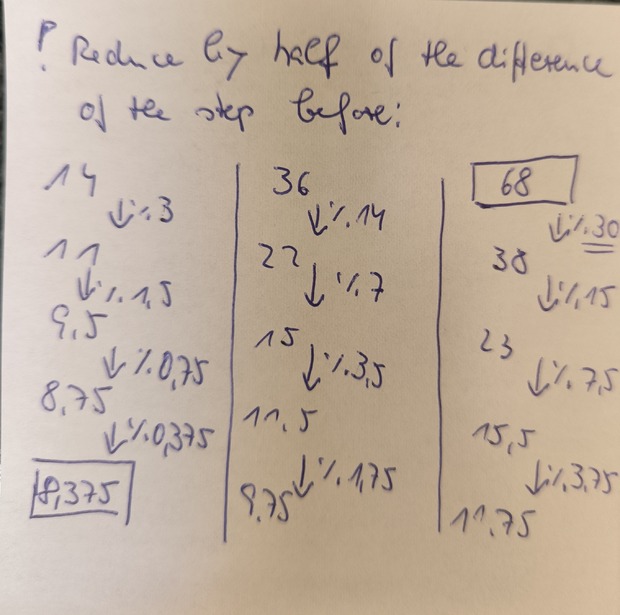 ! Reduce by half of the difference
of the step before:
14
↓ ·/. 3
11
↓ ·/. 1,5
9,5
↓ ·/. 0,75
8,75
↓ ·/. 0,375
8,375
36
↓ ·/. 14
22
↓ ·/. 7
15
↓ ·/. 3,5
11,5
↓ ·/. 1,75
9,75
68
↓ ·/. 30
38
↓ ·/. 15
23
↓ ·/. 7,5
15,5
↓ ·/. 3,75
11,75